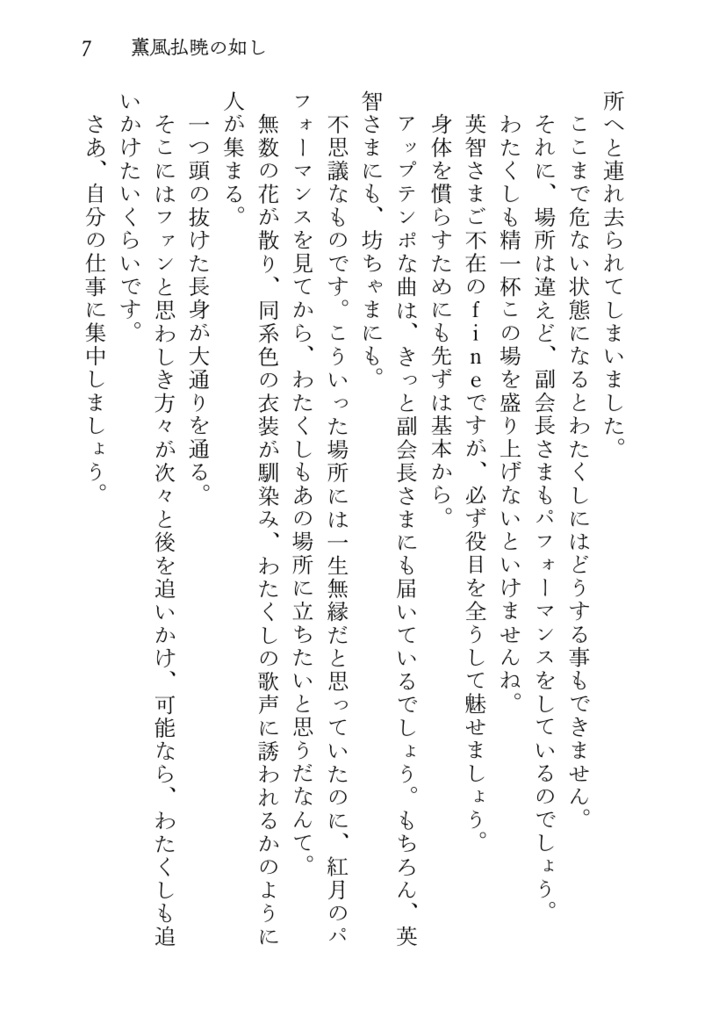 7 薫風払暁の如し
所へと連れ去られてしまいました。
ここまで危ない状態になるとわたくしにはどうする事もできません。
それに、場所は違えど、副会長さまもパフォーマンスをしているのでしょう。
わたくしも精一杯この場を盛り上げないといけませんね。
英智さまご不在のfineですが、必ず役目を全うして魅せましょう。
身体を慣らすためにも先ずは基本から。
アップテンポな曲は、きっと副会長さまにも届いているでしょう。もちろん、英
智さまにも、坊ちゃまにも。
不思議なものです。こういった場所には一生無縁だと思っていたのに、紅月のパ
フォーマンスを見てから、わたくしもあの場所に立ちたいと思うだなんて。
無数の花が散り、同系色の衣装が馴染み、わたくしの歌声に誘われるかのように
人が集まる。
一つ頭の抜けた長身が大通りを通る。
そこにはファンと思わしき方々が次々と後を追いかけ、可能なら、わたくしも追
いかけたいくらいです。
さあ、自分の仕事に集中しましょう。